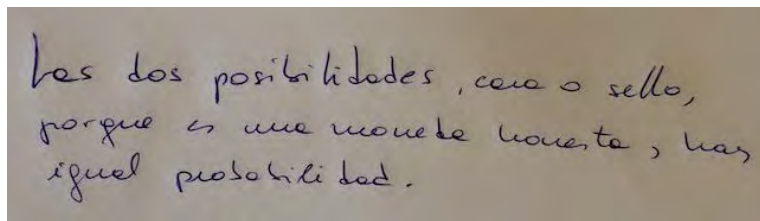 Las dos posibilidades, cara o sello,
porque es una moneda honesta, hay
igual probabilidad.